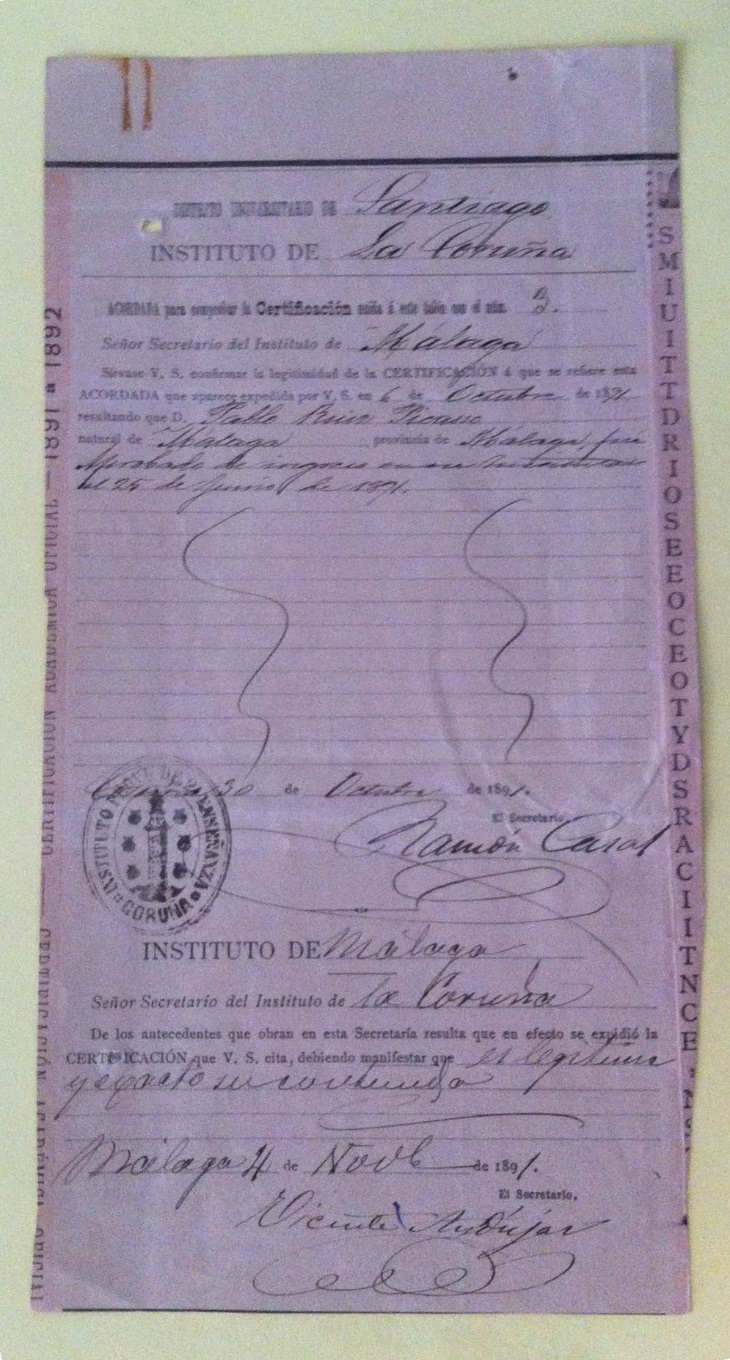 DISTRITO UNIVERSITARIO DE Santiago
INSTITUTO DE La Coruña
ACORDADA para comprobar la Certificación unida á este talón con el núm. 3.
Señor Secretario del Instituto de Málaga
Sírvase V. S. confirmar la legitimidad de la CERTIFICACIÓN á que se refiere esta
ACORDADA que aparece expedida por V. S. en 6 de Octubre de 1891
resultando que D. Pablo Ruiz Picasso
natural de Málaga provincia de Málaga, fué
Aprobado de ingreso en ese Instituto
el 25 de Junio de 1891.
Coruña 30 de Octubre de 1891.
El Secretario,
Ramón Casal
INSTITUTO DE 2ª ENSEÑANZA
CORUÑA
INSTITUTO DE Málaga
Señor Secretario del Instituto de la Coruña
De los antecedentes que obran en esta Secretaría resulta que en efecto se expidió la
CERTIFICACIÓN que V. S. cita, debiendo manifestar que es legítima
y exacto su contenido
Málaga 4 de Novbe de 1891.
El Secretario,
Vicente Andújar
CERTIFICACIÓN ACADÉMICA OFICIAL — 1891 a 1892
CERTIFICACIÓN ACADÉMICA OFICIAL
SMIUITTDRIOSEEOCEOTYDSRACIITNCE